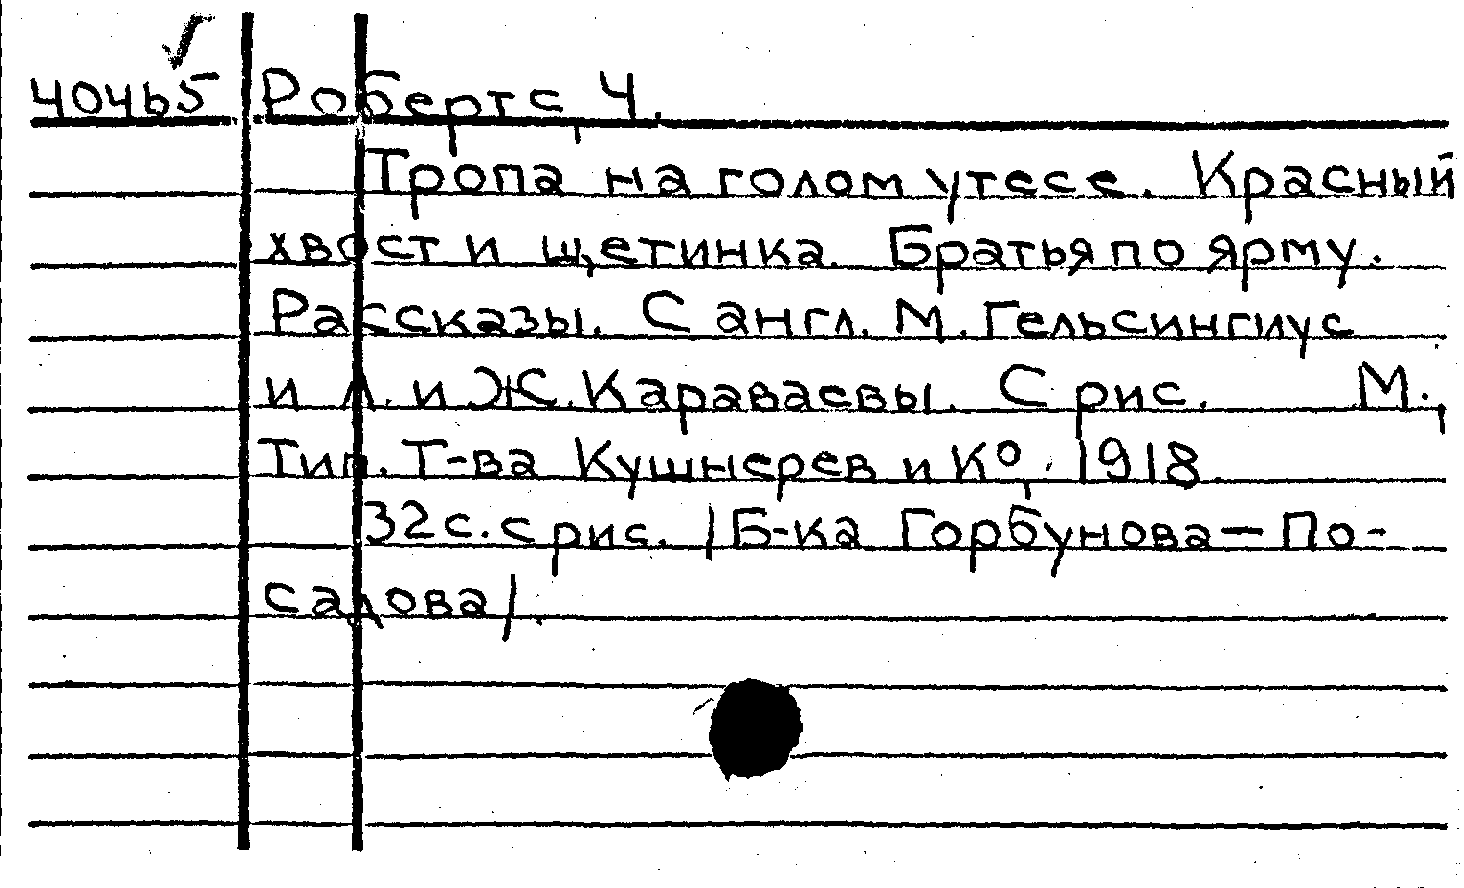 404b5 Робертс, Ч.
Тропа на голом утесе. Красный
хвост и щетинка. Братья по ярму.
Рассказы. С англ. М. Гельсингиус
и Л. и Ж. Караваевы. С рис. М.,
Тип. Т-ва Кушнерев и Ко, 1918.
32 с. с рис. /Б-ка Горбунова-По-
садова/.